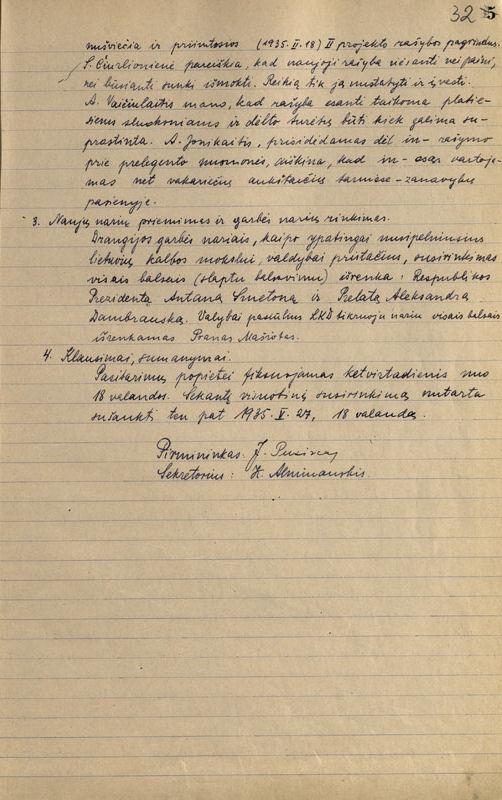 32 5
nušviečia ir priimtosios (1935.II.18) II projekto rašybos pagrindus.
S. Čiurlionienė pareiškia, kad naujoji rašyba nėsanti nei paini,
nei būsianti sunki išmokti. Reikią tik ją nustatyti ir įvesti.
A. Vaičiulaitis mano, kad rašyba esanti taikoma platie-
siems sluoksniams ir dėlto turėtų būti kiek galima su-
prastinta. A. Jonikaitis, prisidėdamas dėl in- rašymo
prie prelegento nuomonės, aiškina, kad in- esąs vartoja-
mas net vakariečių aukštaičių tarmėse - zanavykų
pasienyje.
3. Naujų narių priėmimas ir garbės narių rinkimas.
Draugijos garbės nariais, kaipo ypatingai nusipelniusius
lietuvių kalbos mokslui, valdybai pristačius, susirinkimas
visais balsais (slaptu balsavimu) išrenka: Respublikos
Prezidentą Antaną Smetoną ir Prelatą Aleksandrą
Dambrauską. Valdybai pasiūlius LKD tikruoju nariu visais balsais
išrenkamas Pranas Mašiotas.
4. Klausimai, sumanymai.
Posėdžių ketvirtadienis nuo
18 valandos. Sekantį visuotinį susirinkimą nutarta
sušaukti ten pat 1935.V.27, 18 valandą.
Pirmininkas: J.
Sekretorius: K. Alminauskis.